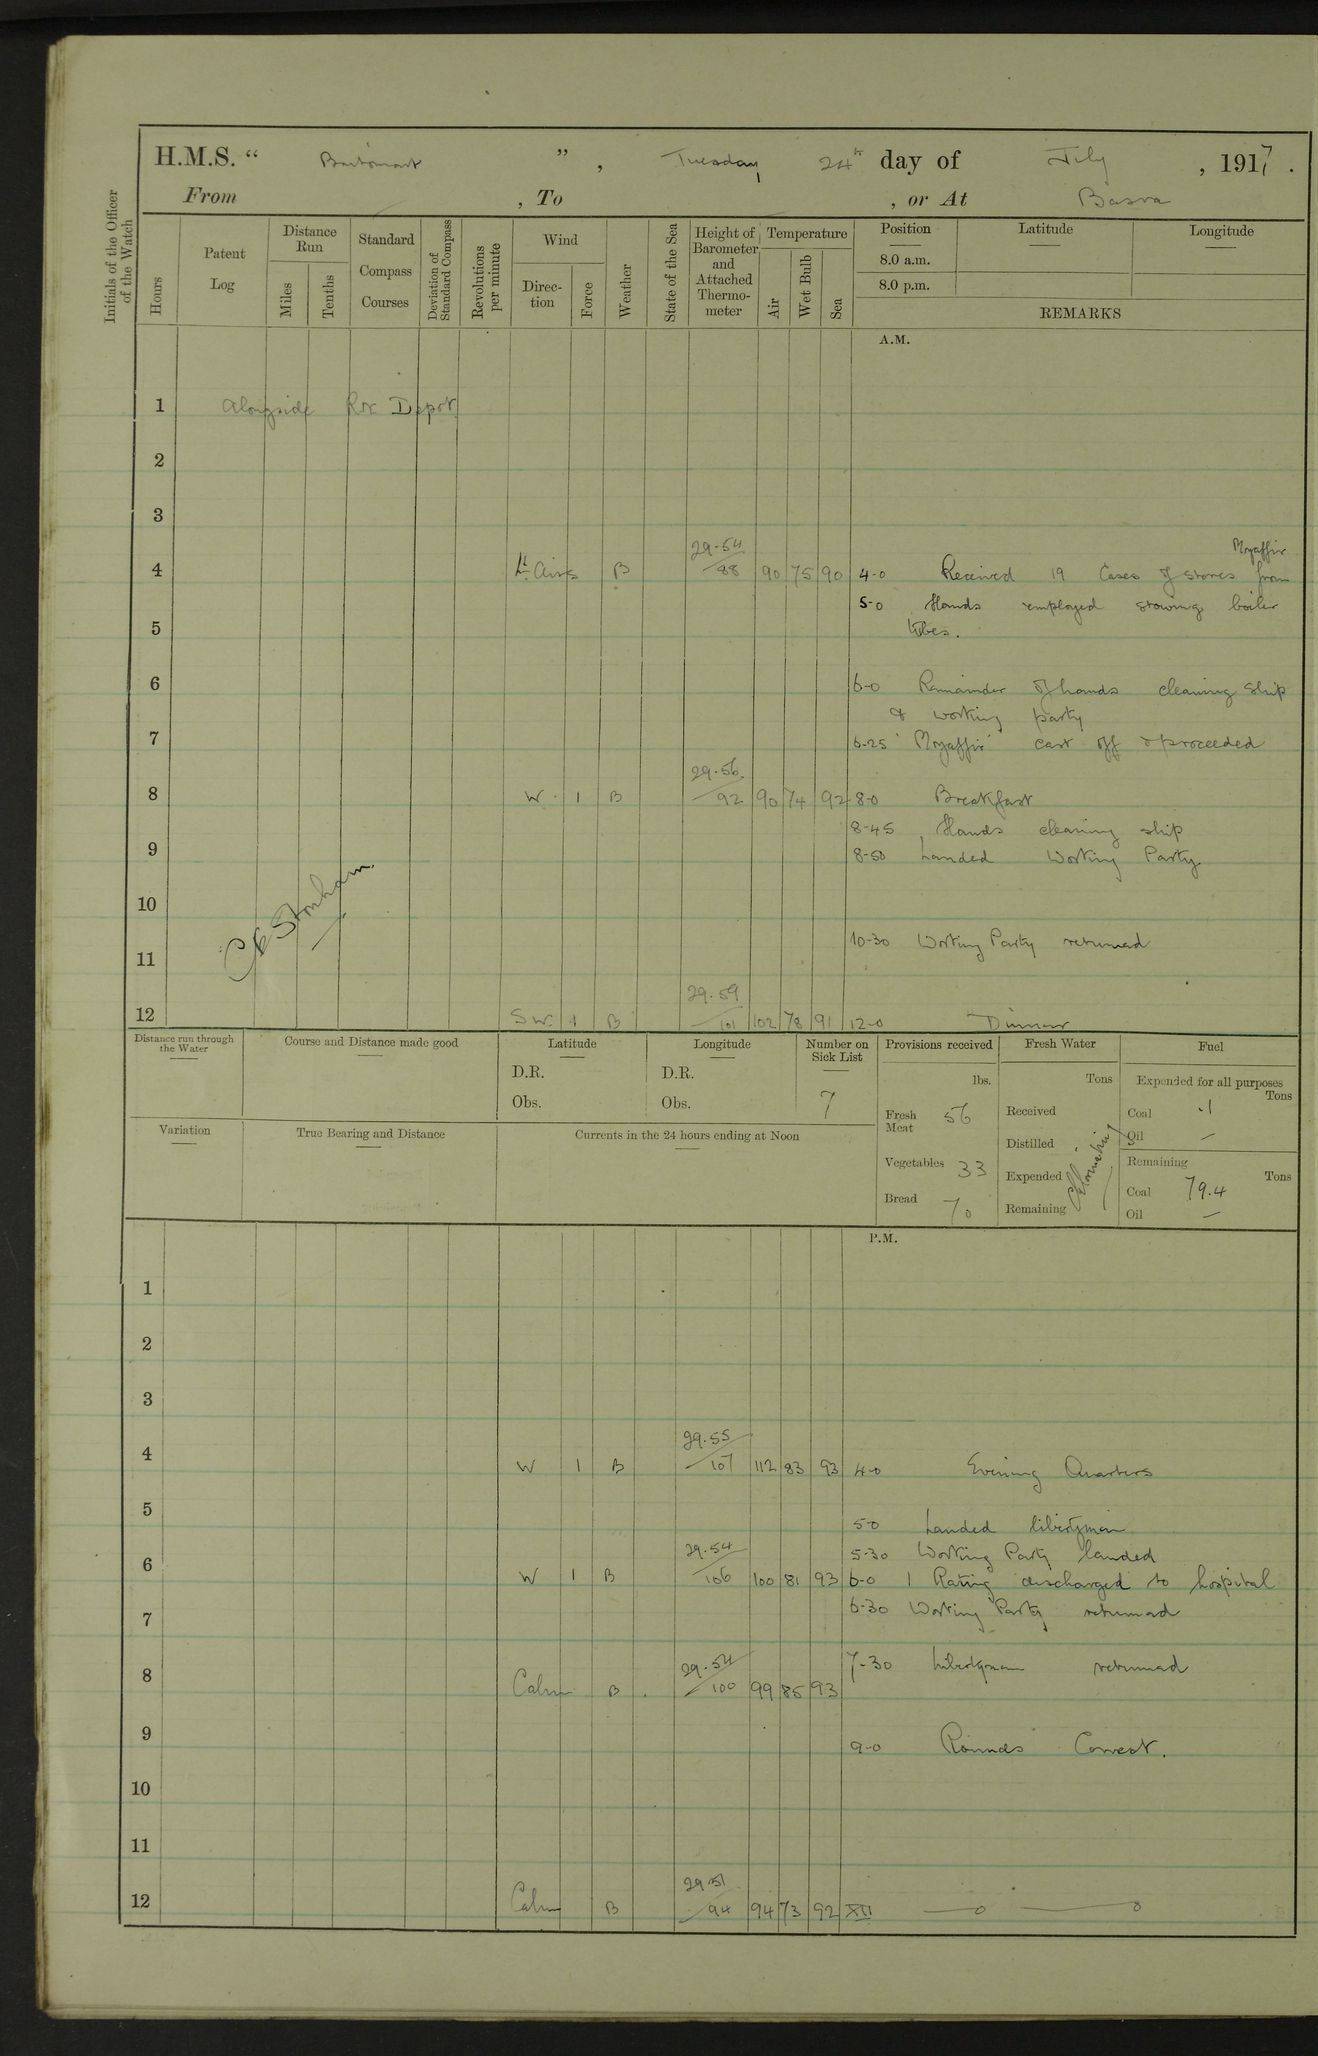 H.M.S. " Britomart ", Tuesday 24th day of July, 1917.
From , To , or At Basra
Initials of the Officer of the Watch
Hours
Patent Log
Distance Run
Miles
Tenths
Standard Compass Courses
Deviation of Standard Compass
Revolutions per minute
Wind
Direction
Force
Weather
State of the Sea
Height of Barometer and Attached Thermometer
Temperature
Air
Wet Bulb
Sea
Position
8.0 a.m.
8.0 p.m.
Latitude
Longitude
REMARKS
A.M.
1 Alongside Depot
2
3
4 Lt Airs B 29.54 / 88 90 75 90 4-0 Received 19 Cases of stores from
5-0 Hands employed stowing boiler
5 tubes.
6 6-0 Remainder of hands cleaning ship
& working party
7 6-25 cast off & proceeded
8 W. 1 B 29.56 / 92 90 74 92 8-0 Breakfast
8-45 Hands cleaning ship
9 8-50 Landed Working Party
10
10-30 Working Party returned
11
12 SW. 1 B 29.59 / 101 102 78 91 12-0 Dinner
Distance run through the Water
Course and Distance made good
Latitude
D.R.
Obs.
Longitude
D.R.
Obs.
Number on Sick List
7
Provisions received
lbs.
Fresh Meat 56
Vegetables 33
Bread 70
Fresh Water
Tons
Received
Distilled
Expended
Remaining
Fuel
Expended for all purposes
Tons
Coal .1
Oil —
Remaining
Tons
Coal 79.4
Oil —
Variation
True Bearing and Distance
Currents in the 24 hours ending at Noon
P.M.
1
2
3
4 W 1 B 29.55 / 107 112 83 93 4-0 Evening Quarters
5
5-0 Landed libertymen
5-30 Working Party landed
6 W 1 B 29.54 / 106 100 81 93 6-0 1 Rating discharged to hospital
6-30 Working Party returned
7
7-30 Libertymen returned
8 Calm B. 29.54 / 100 99 85 93
9
9-0 Rounds Correct.
10
11
12 Calm B 29.51 / 94 94 73 92 XII